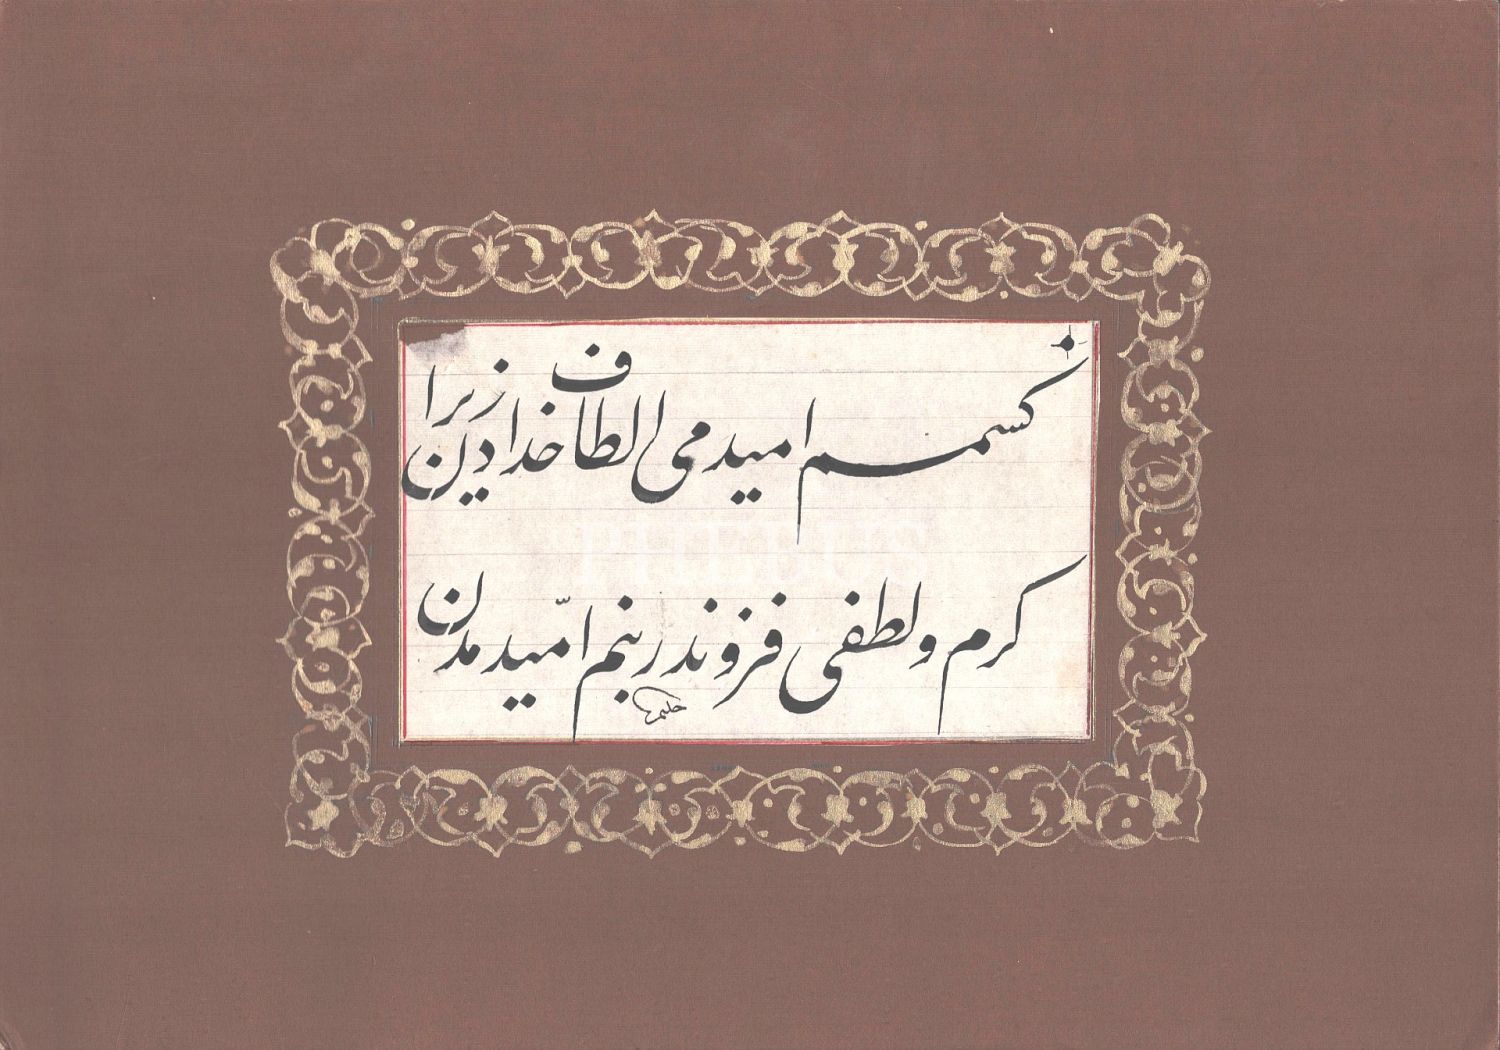 کسمم امیدمی الطاف خدادن زیرا
کرم و لطفی فزوندر بنم امّیدمدن
حلیم
PHEBUS